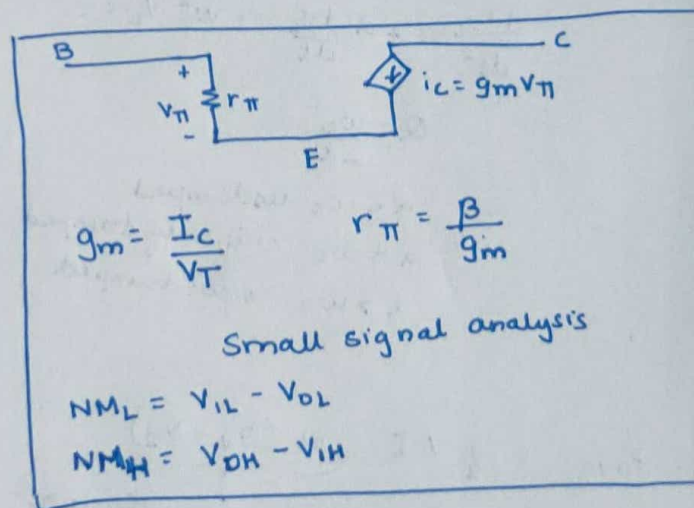 B
C
+
Vπ rπ
-
ic = gmVπ
E
gm = Ic / VT
rπ = β / gm
Small signal analysis
NML = VIL - VOL
NMH = VOH - VIH